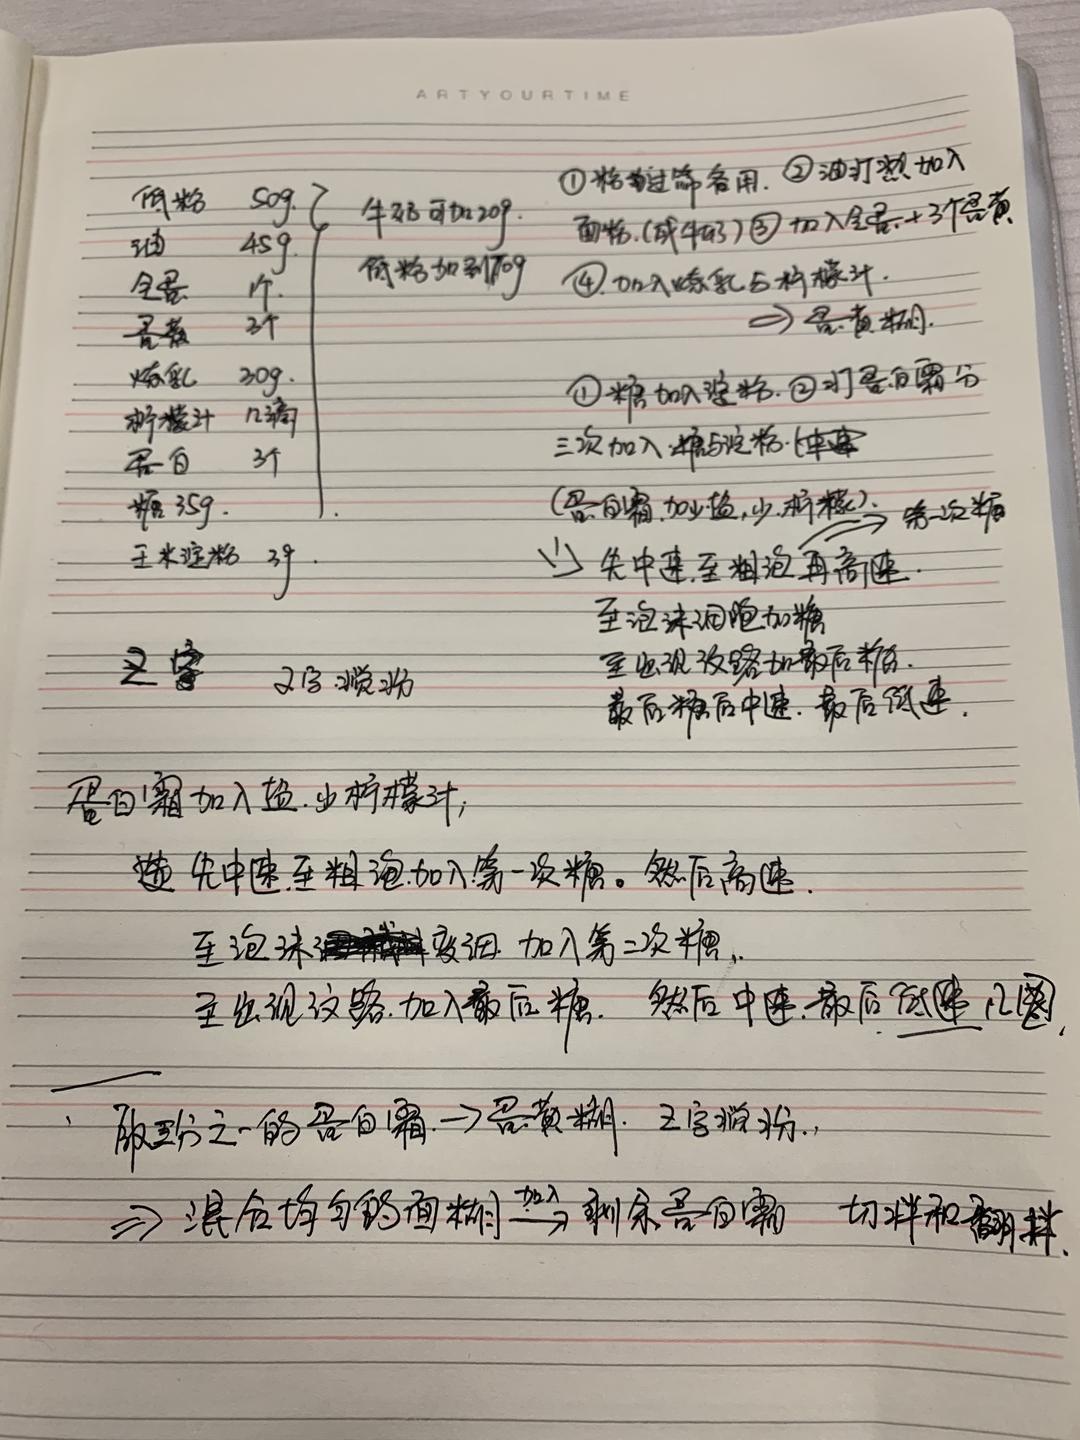 ARTYOURTIME
低粉 50g.
油 45g
全蛋 1个.
蛋黄 3个
炼乳 30g.
柠檬汁 几滴
蛋白 3个
糖 35g.
玉米淀粉 3g.
牛奶可加20g.
低粉加到60g
①粉过筛备用. ②油打热加入
面粉.(或牛奶)③加入全蛋+3个蛋黄
④.加入炼乳与柠檬汁.
⇒蛋黄糊.
①糖加入淀粉.②打蛋白霜分
三次加入.糖与淀粉.
(蛋白霜.加少盐,少.柠檬).
→第一次糖
先中速.至粗泡再高速.
至泡沫细腻加糖
至出现纹路加最后糖.
最后糖后中速.最后低速.
之字
Z字搅拌
蛋白霜加入盐.少柠檬汁,
先中速.至粗泡.加入第一次糖。然后高速.
至泡沫变细.加入第二次糖,.
至出现纹路.加入最后糖. 然后中速.最后低速几圈.
取三分之一的蛋白霜.→蛋黄糊. Z字搅拌.,
⇒混合均匀的面糊加入→剩余蛋白霜 切拌和翻拌.